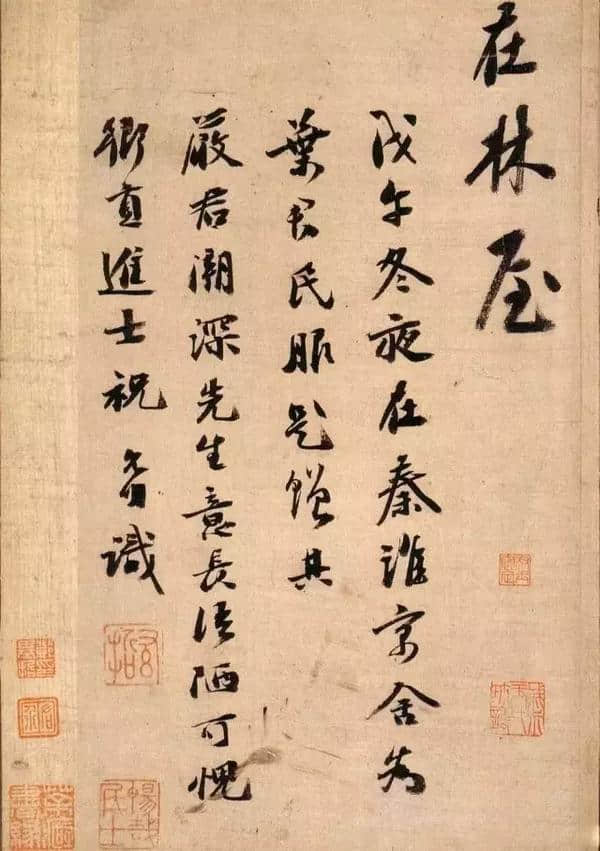 在林屋
戊午冬夜在秦淮寓舍為
葉君民服先贈其
嚴君潮深先生意長語陋可愧
鄉貢進士祝允明識